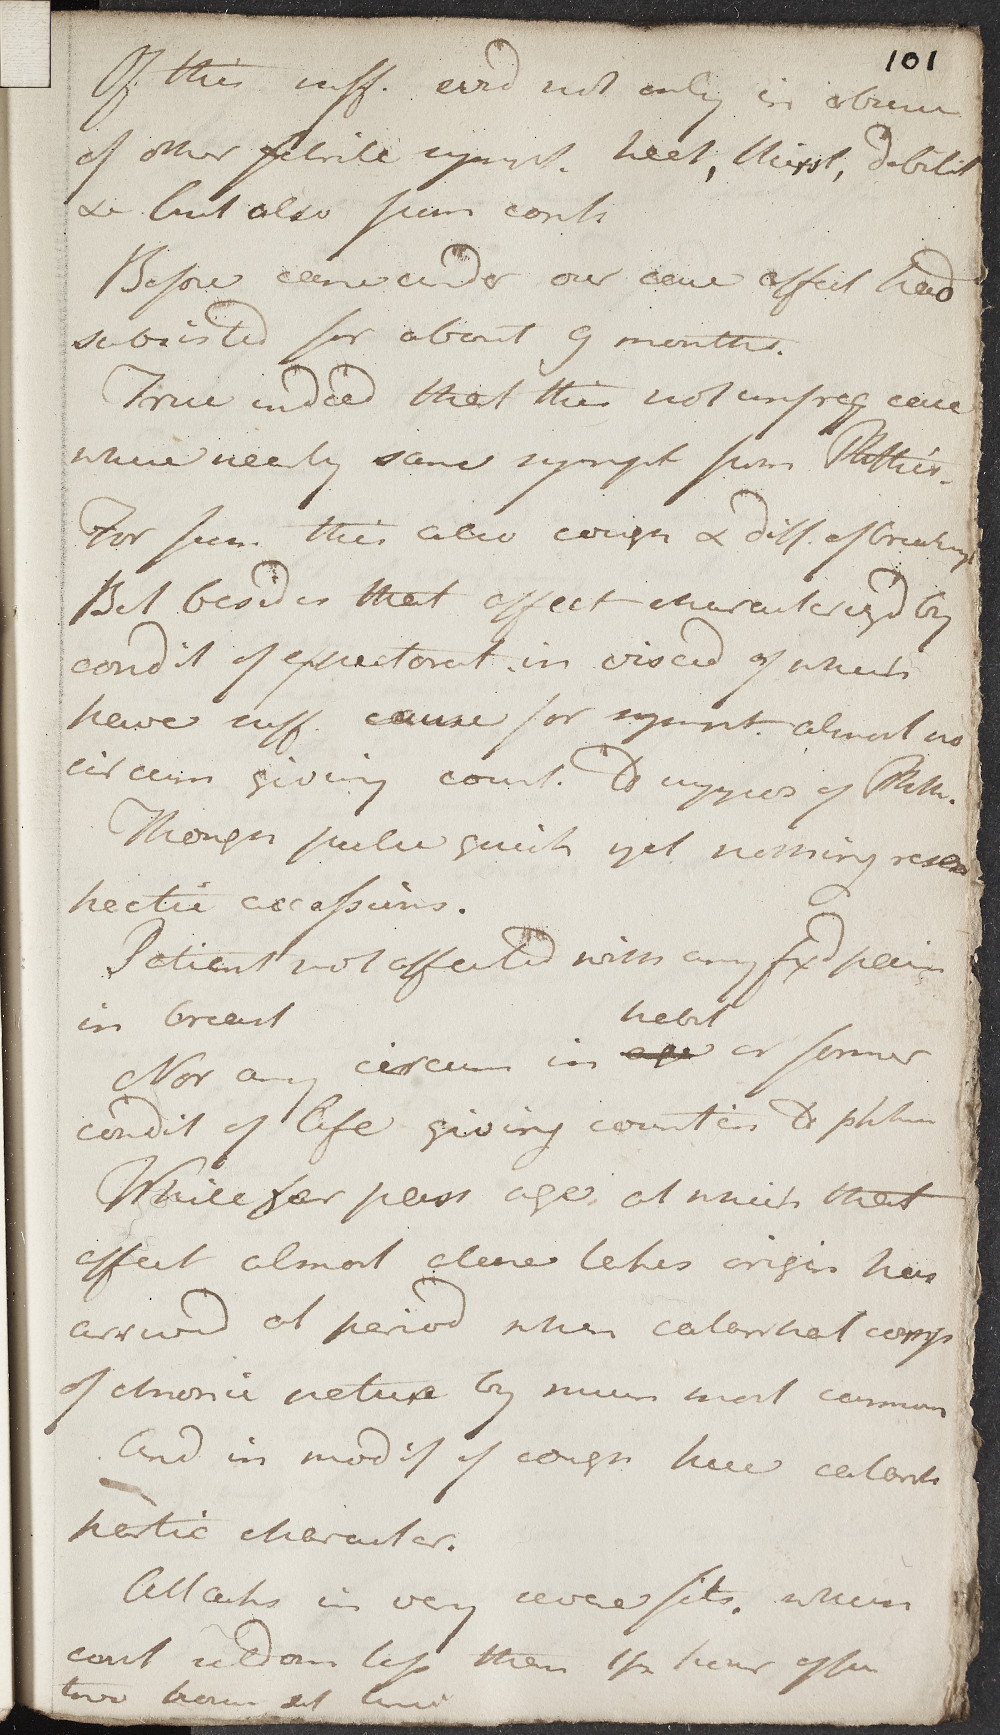 101
Of this suff. evid not only in absence
of other febrile sympt. heat, thirst, debilit
&c but also from conti
Before came under our care affect had
subsisted for about 9 months.
True indeed that this not unfreq case
where nearly same sympt from Phthis.
For from this also cough & diff of breathing
But besides that affect characterizd by
condit of expectorat. in viscid of which
have suff. cause for sympt. almost no
circum giving count. to suppos of Phth.
Though pulse quick yet nothing resem
hectic accessions.
Patient not affected with any fixd pain
in breast
habit
Nor any circum in age or former
condit of life giving counten to phthis
While far past age at which that
affect almost alone takes origin has
arrived at period when catarrhal comps
of chronic nature by much most common
And in modif of cough have catarrh
hastic character.
Attacks in very severe fits. which
cont seldom less than 1/2 hour often
two hours at time